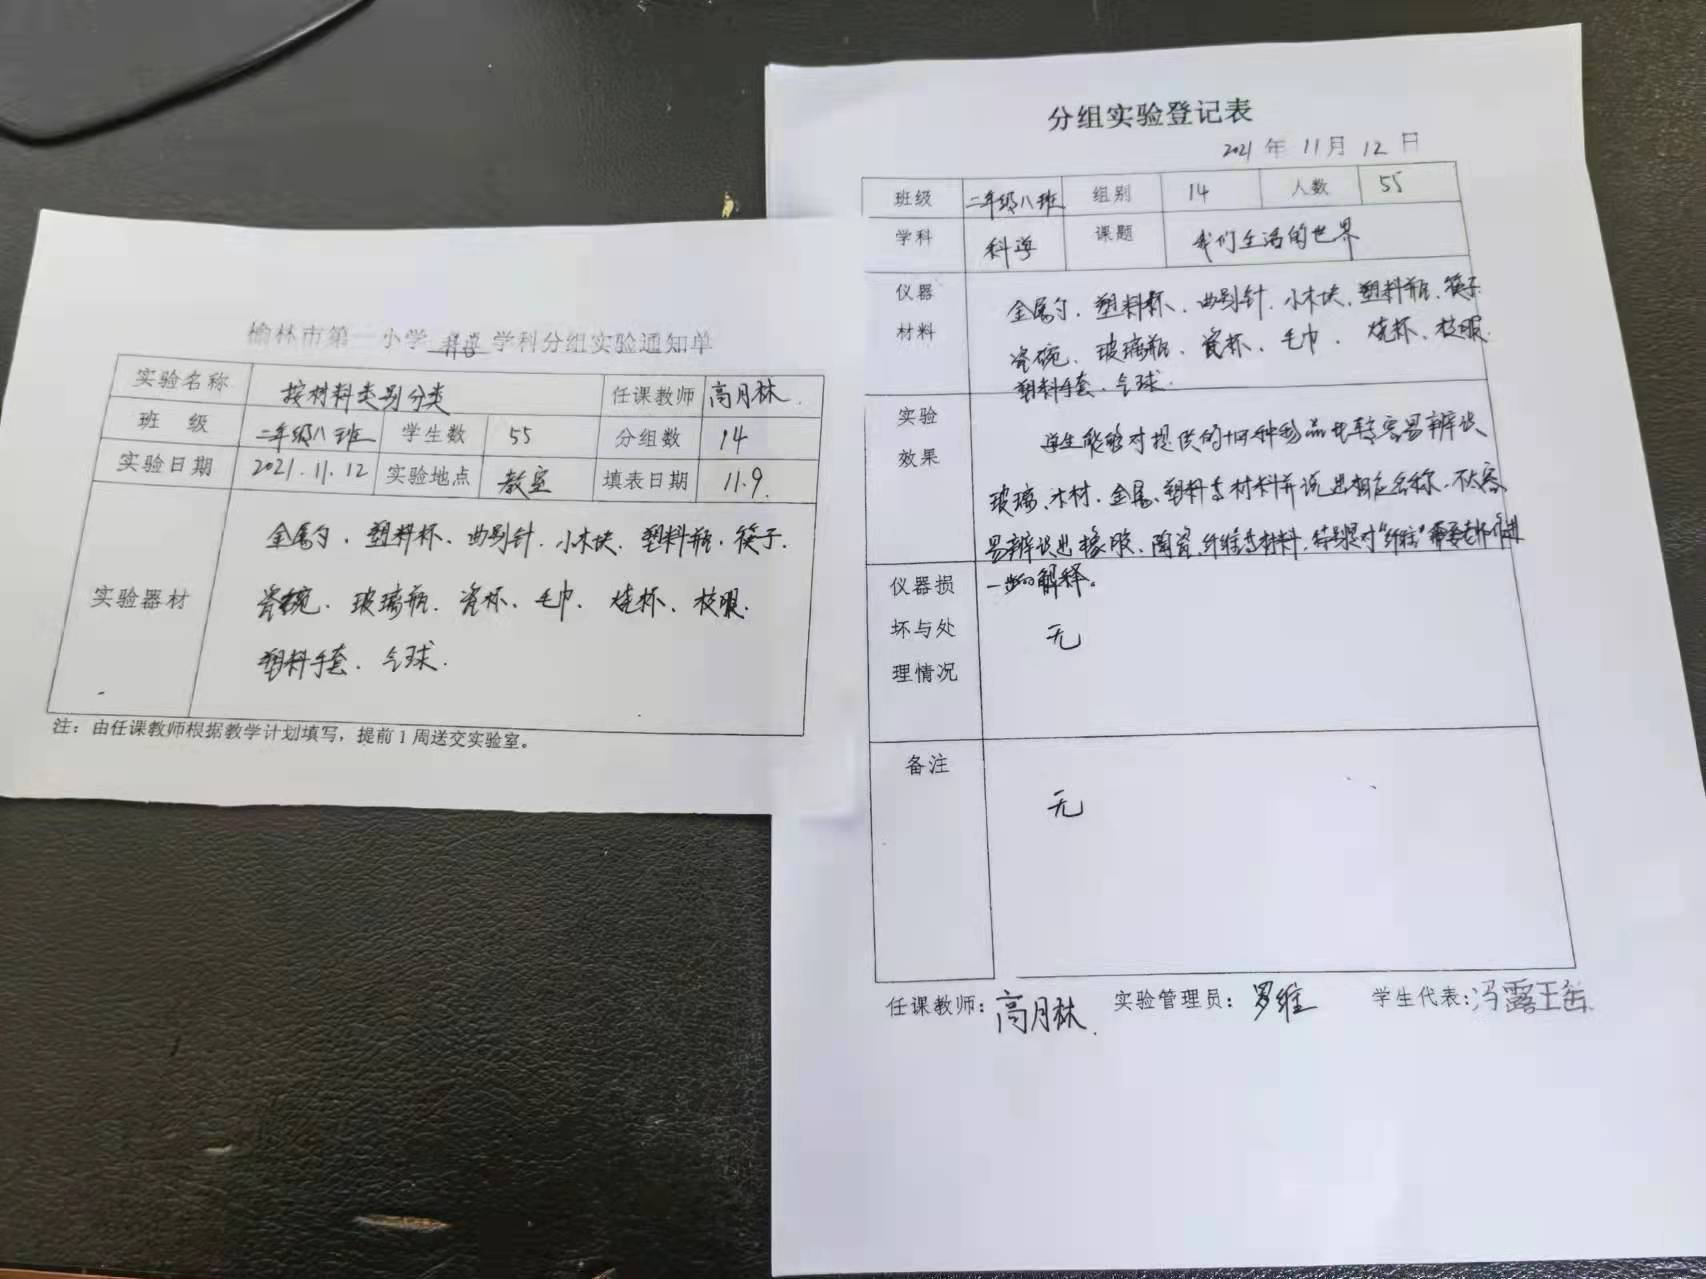 榆林市第一小学科学学科分组实验通知单
实验名称 按材料类别分类 任课教师 高月林
班 级 二年级八班 学生数 55 分组数 14
实验日期 2021.11.12 实验地点 教室 填表日期 11.9
实验器材
金属勺、塑料杯、曲别针、小木块、塑料瓶、筷子、
瓷碗、玻璃瓶、瓷杯、毛巾、烧杯、校服、
塑料手套、气球.
注：由任课教师根据教学计划填写，提前1周送交实验室。
分组实验登记表
2021 年 11 月 12 日
班级 二年级八班 组别 14 人数 55
学科 科学 课题 我们生活的世界
仪器
材料
金属勺、塑料杯、曲别针、小木块、塑料瓶、筷子
瓷碗、玻璃瓶、瓷杯、毛巾、烧杯、校服.
塑料手套、气球.
实验
效果
学生能够对提供的十四种物品比较容易辨识
玻璃、木材、金属、塑料等材料并说出相应名称.不太容
易辨识出橡胶、陶瓷、纤维等材料,特别是对“纤维”需要老师作进
一步的解释。
仪器损
坏与处
理情况
无
备注
无
任课教师：高月林 实验管理员：罗维 学生代表：冯露王